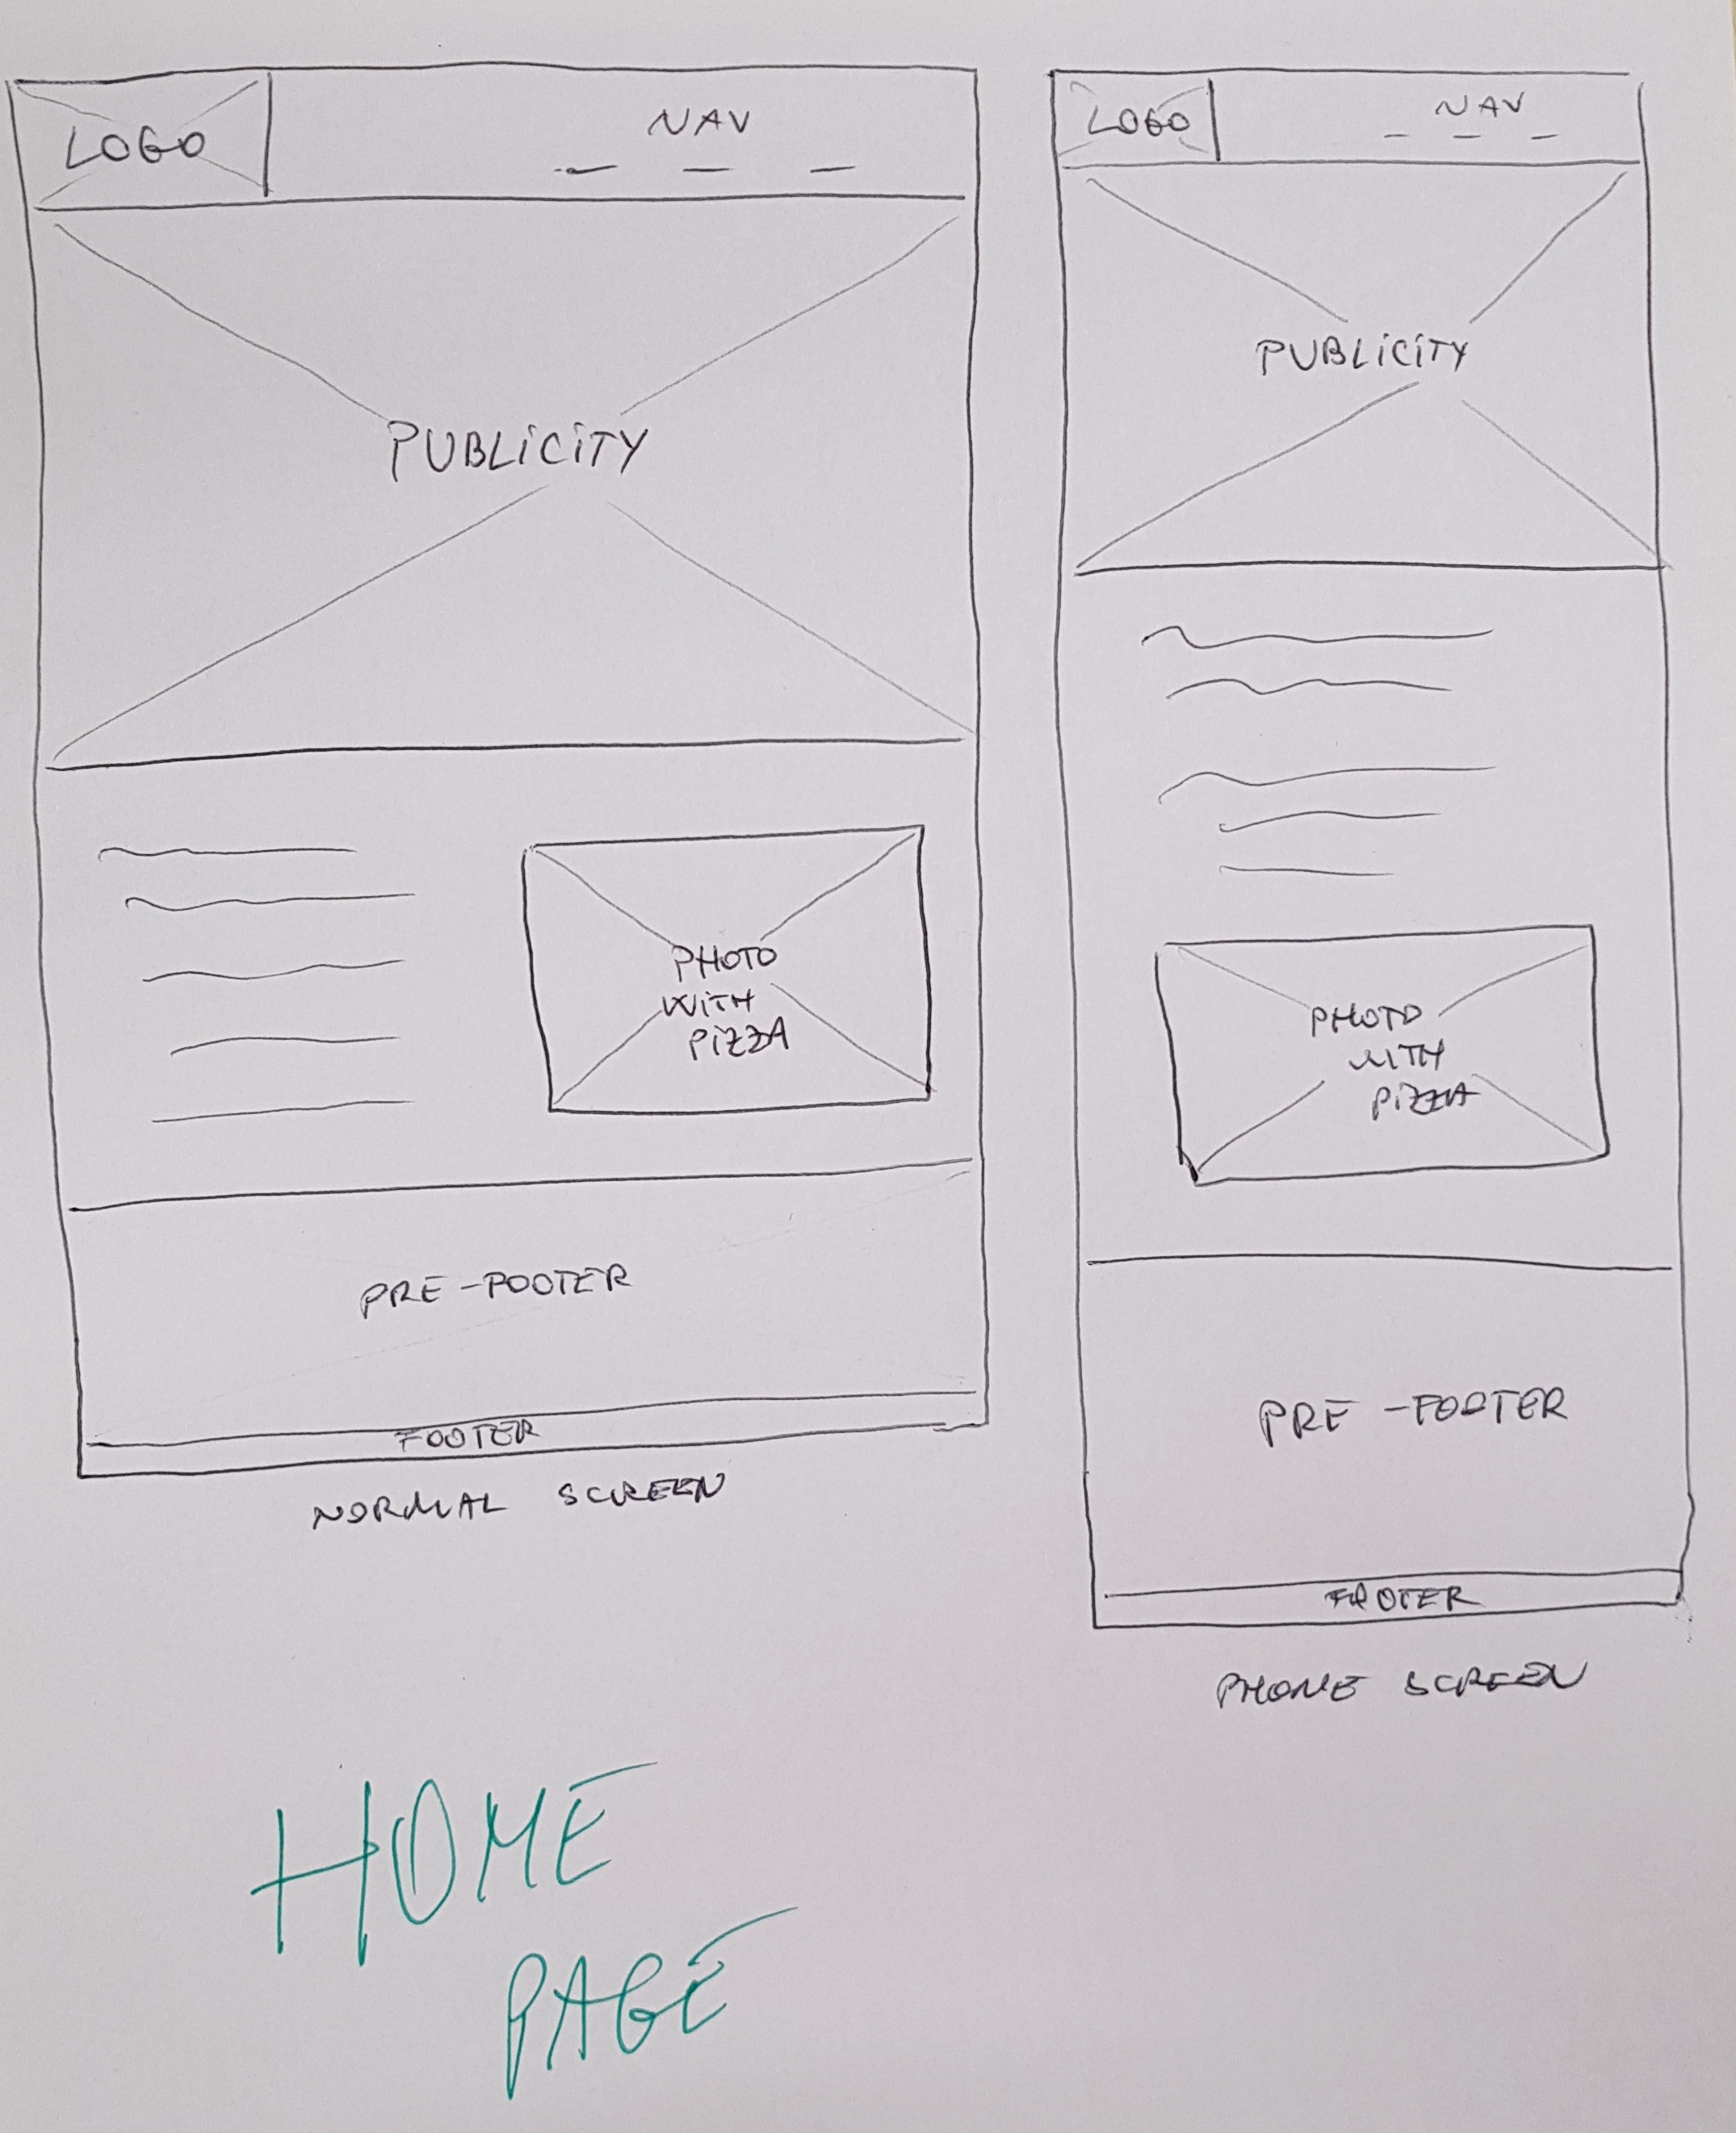 LOGO
NAV
PUBLiCiTY
PHOTO
WiTH
PiZZA
PRE-FOOTER
FOOTER
NORMAL SCREEN
LOGO
NAV
PUBLiCiTY
PHOTO
WITH
PiZZA
PRE-FOOTER
FOOTER
PHONE SCREEN
HOME
PAGE